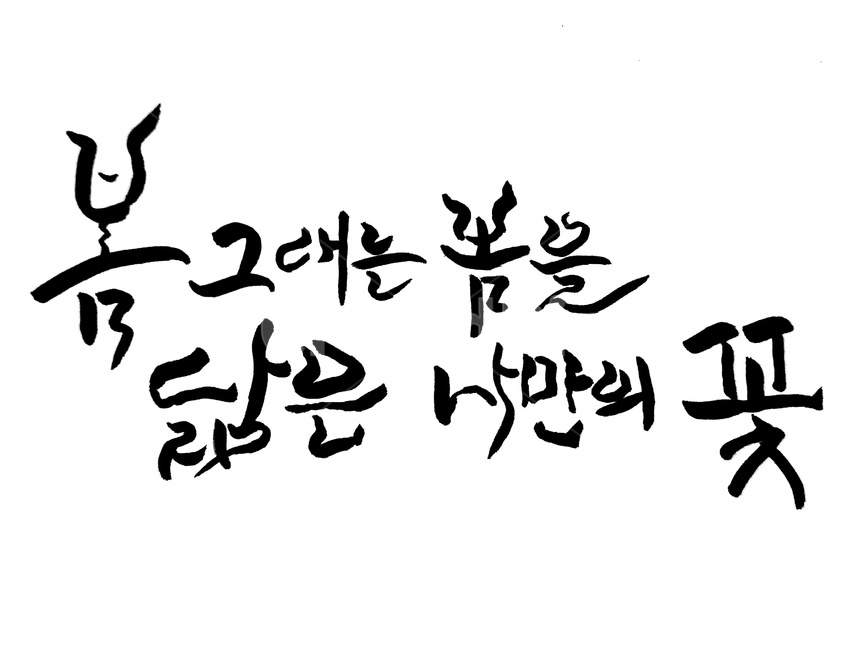 봄 그대는 봄을
닮은 나만의 꽃